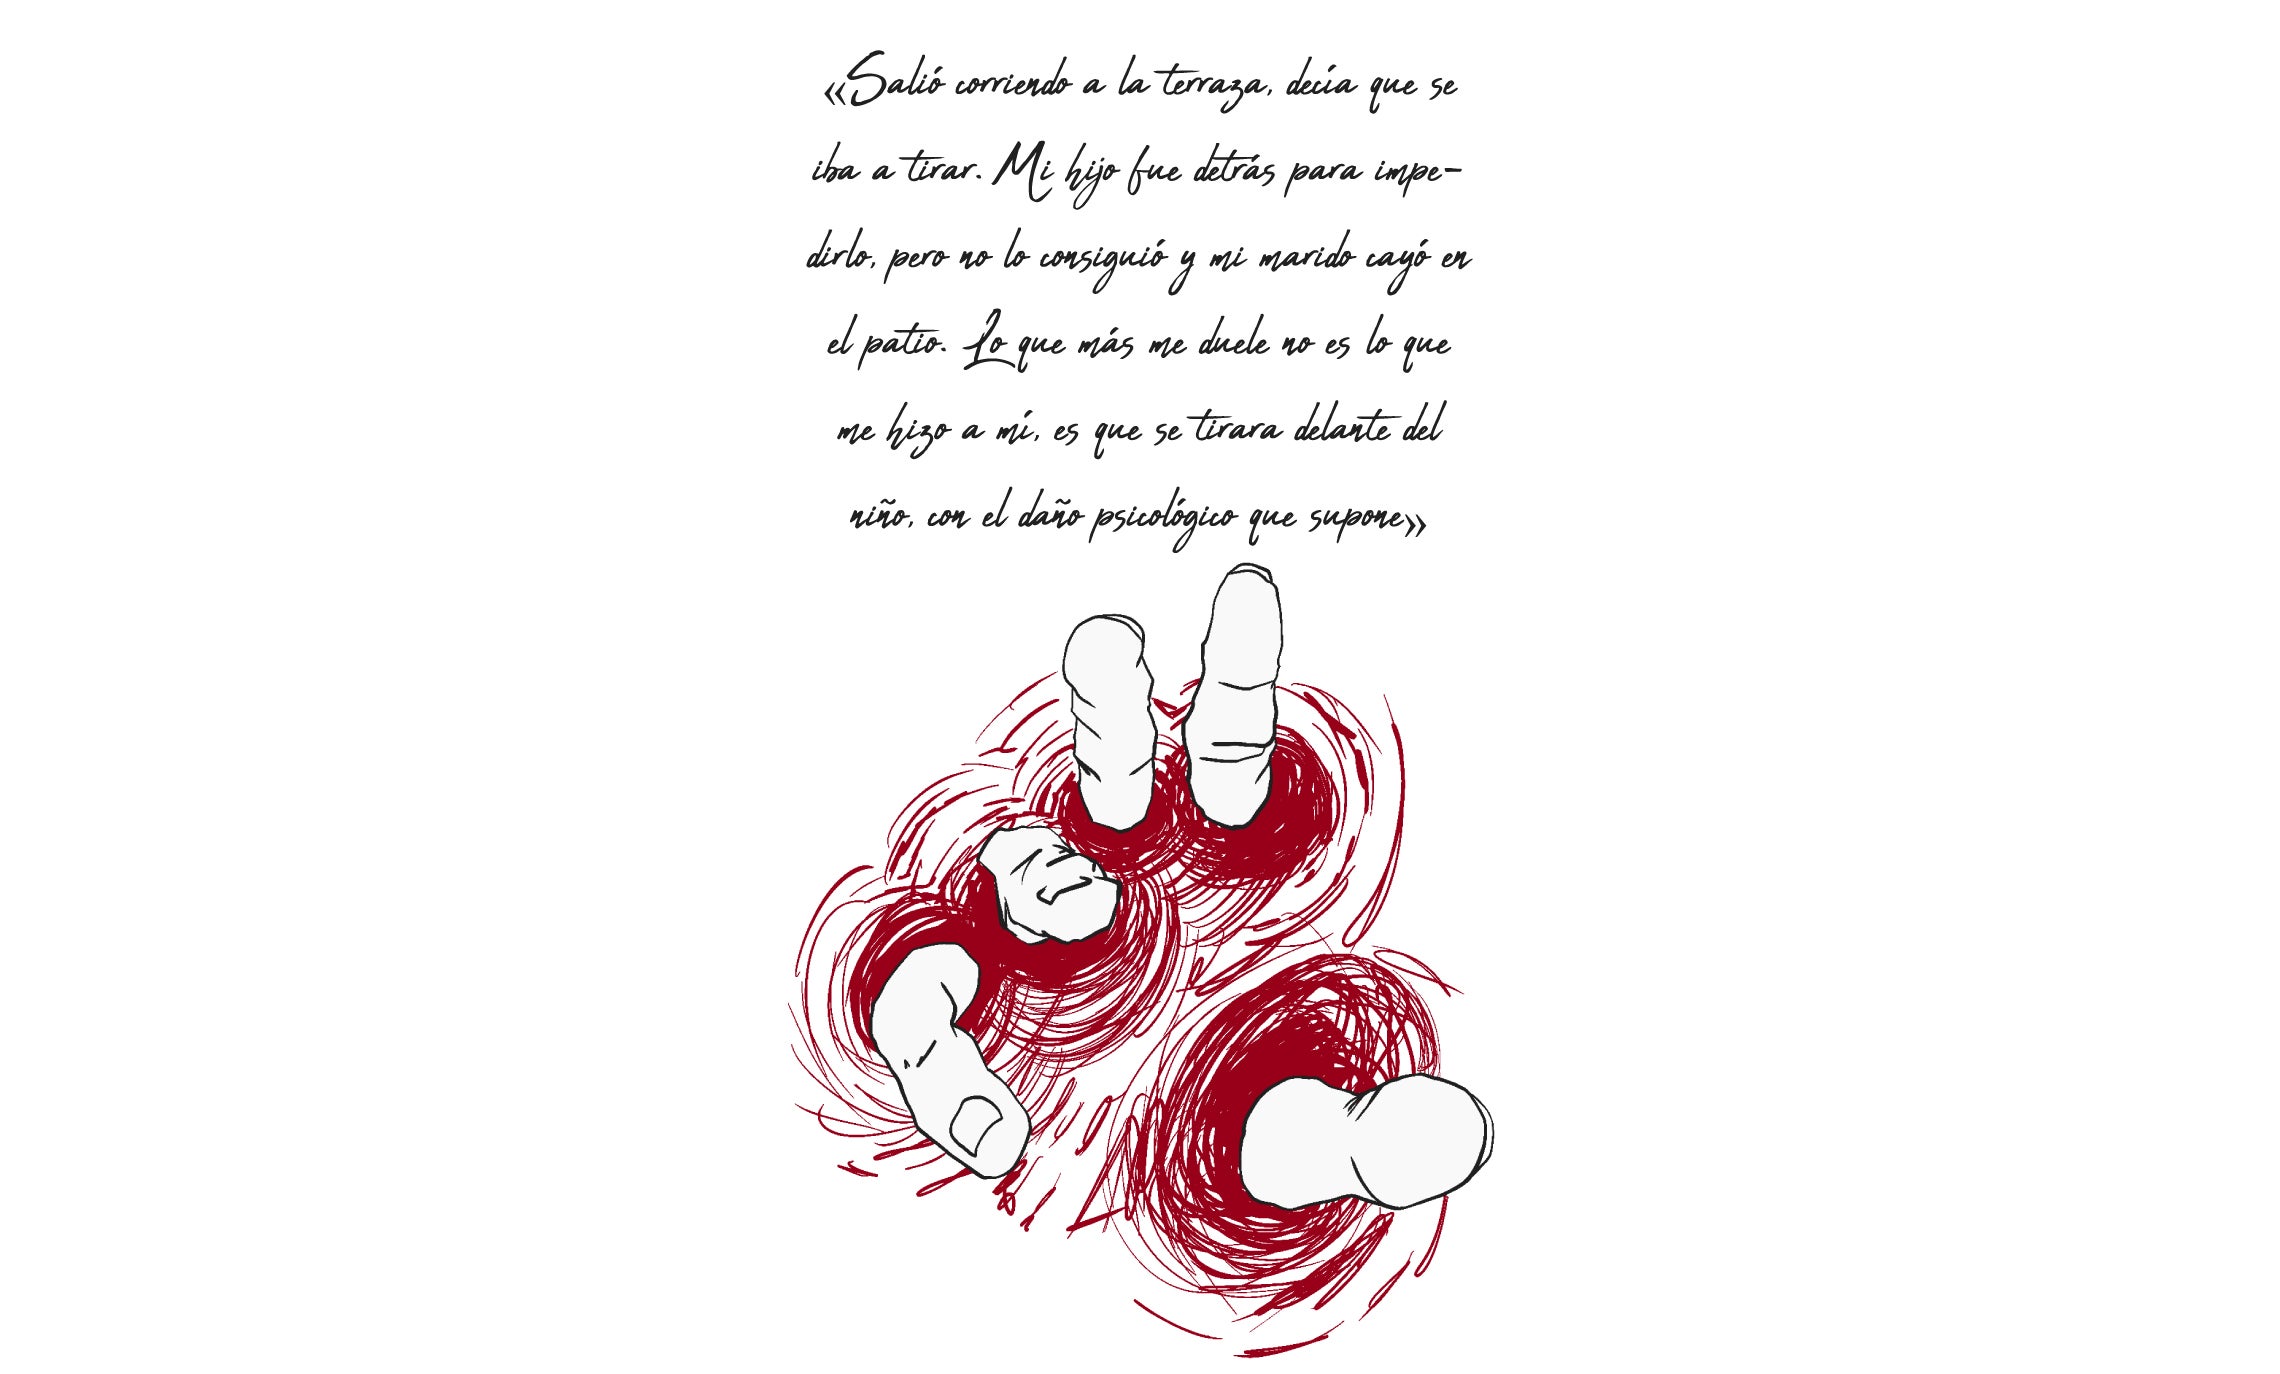 «Salió corriendo a la terraza, decía que se
iba a tirar. Mi hijo fue detrás para impe-
dirlo, pero no lo consiguió y mi marido cayó en
el patio. Lo que más me duele no es lo que
me hizo a mí, es que se tirara delante del
niño, con el daño psicológico que supone»